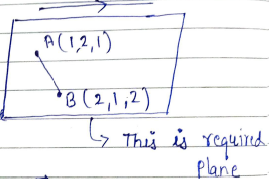 A(1,2,1)
B(2,1,2)
↳ This is required
plane